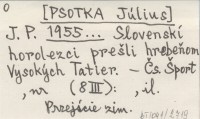 0
[PSOTKA Július]
J. P. 1955... Slovenskí
horolezci prešli hrebeňom
Vysokých Tatier. – Čs. Šport
, nr (8 III): , il.
Przejście zim.